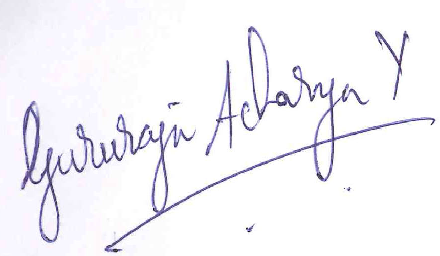 Gururaja Acharya Y